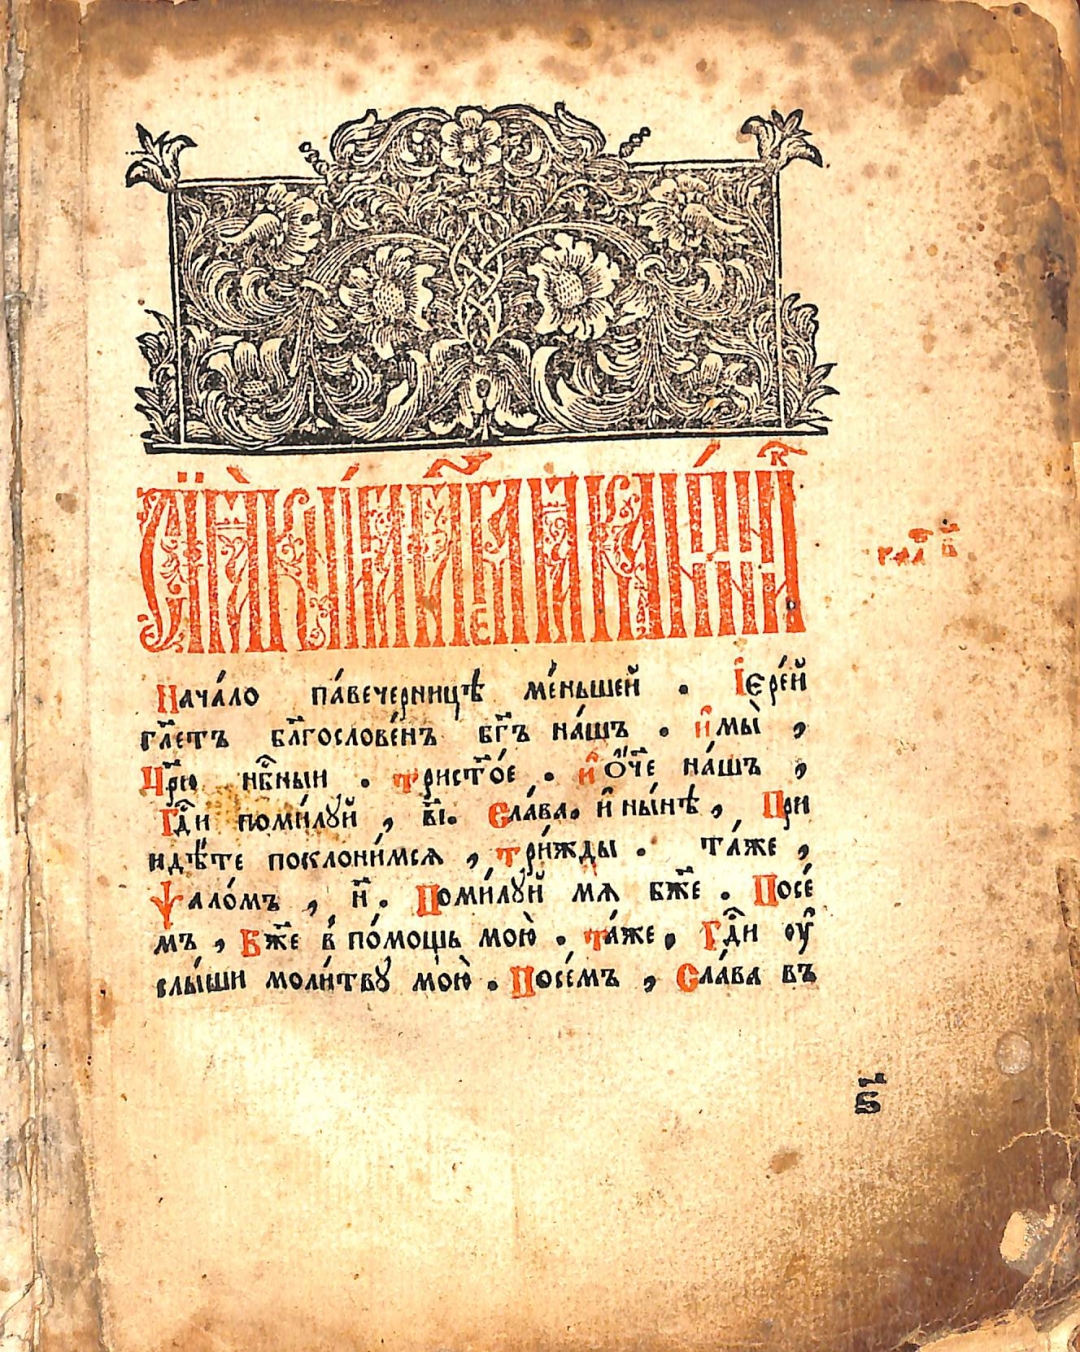 гла в҃
Нача́ло па́вечерницѣ ме́ньшей . І҆ере́й
гл҃етъ бл҃гослове́нъ бг҃ъ на́шъ . и҆ мы̀ ,
Цр҃ю нбⷭ҇ныи . трист҃о́е . и҆ ѻ҆́ч҃е на́шъ ,
Гдⷭ҇и поми́лꙋй , в҃і . Сла́ва . и҆ ны́нѣ , При
идѣ́те поклони́мсѧ , три́жды . та́же ,
Ѱало́мъ , н҃ . Поми́лꙋй мѧ бж҃е . Посе́
мъ , Бж҃е в по́мощь мою̀ . та́же , Гдⷭ҇и ᲂу҆
слы́ши моли́твꙋ мою̀ . Посе́мъ , Сла́ва въ